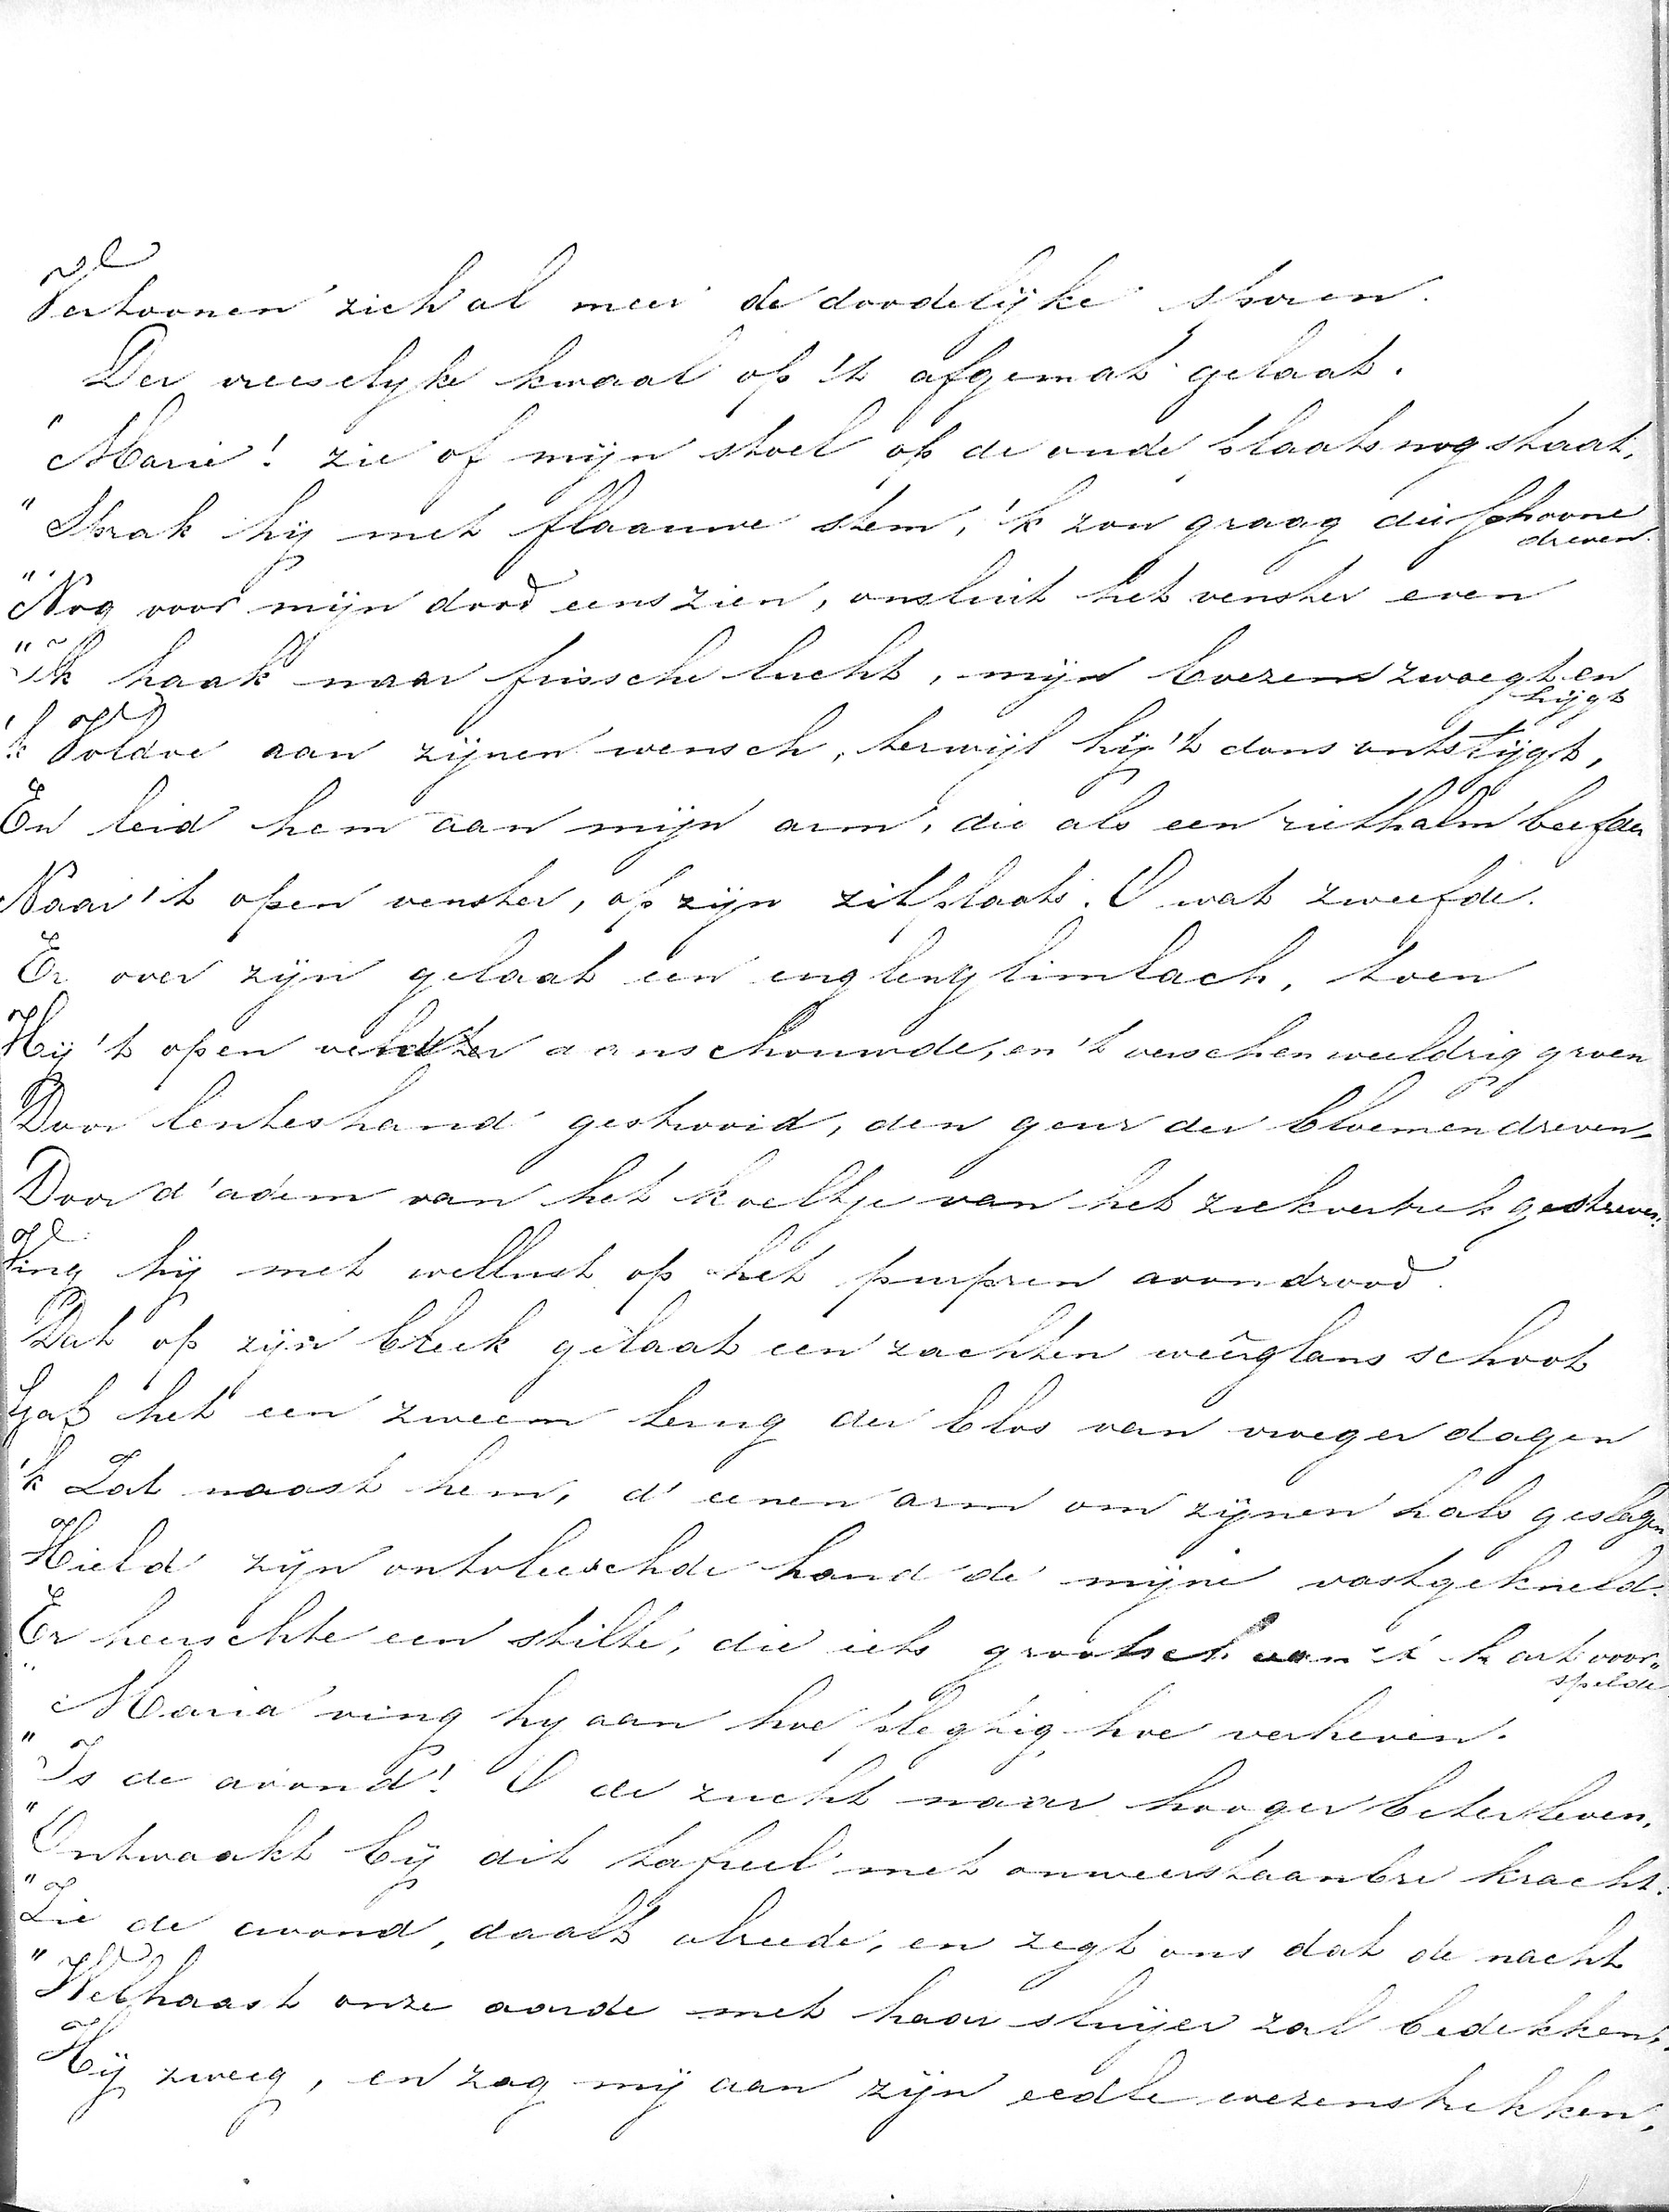 Vertoonen zich al meer de doodelijke sporen.
Der vreeselyke kwaal op 't afgemat gelaat.
"Marie! zie of mijn stoel op de oude plaats nog staat,
"Sprak hij met flaauwe stem, 'k zou graag die schoone
dreven.
"Nog voor mijn dood eens zien, onsluit het venster even
"Ik haak naar frissche lucht, mijn boezem zwoegt en
hijgt
'k Voldoe aan zijnen wensch, terwijl hij 't dons ontstijgt,
En leid hem aan mijn arm, die als een riethalm beefde
Naar 't open venster, op zijn zitplaats. O wat zweefde.
Er over zijn gelaat een englenglimlach, toen
Hij 't open aanschouwde, en 't verschen weeldrig groen
Door lenteshand gestrooid, den geur der bloemendreven
Door d'adem van het koeltje van het ziekvertrek gedreven.
Ving hij met wellust op het purpren avondrood.
Dat op zijn bleek gelaat een zachten weêrglans schoot
Gaf het een zweem terug der blos van vroeger dagen
'k Zat naast hem, d'eenen arm om zijnen hals geslagen
Hield zijn ontvleeschde hand de mijne vastgekneld.
Er heerschte een stilte, die iets grootsch aan 't hart voor„
spelde
"Maria ving hy aan hoe plegtig, hoe verheven.
"Is de avond! O de zucht naar hooger beter leven.
"Ontwaakt bij dit tafreel met onweerstaanbre kracht.
"Zie de avond, daalt alreede, en zegt ons dat de nacht
"Welhaast onze aarde met haar sluijer zal bedekken,
Hij zweeg, en zag mij aan zijn eedle wezenstrekken,